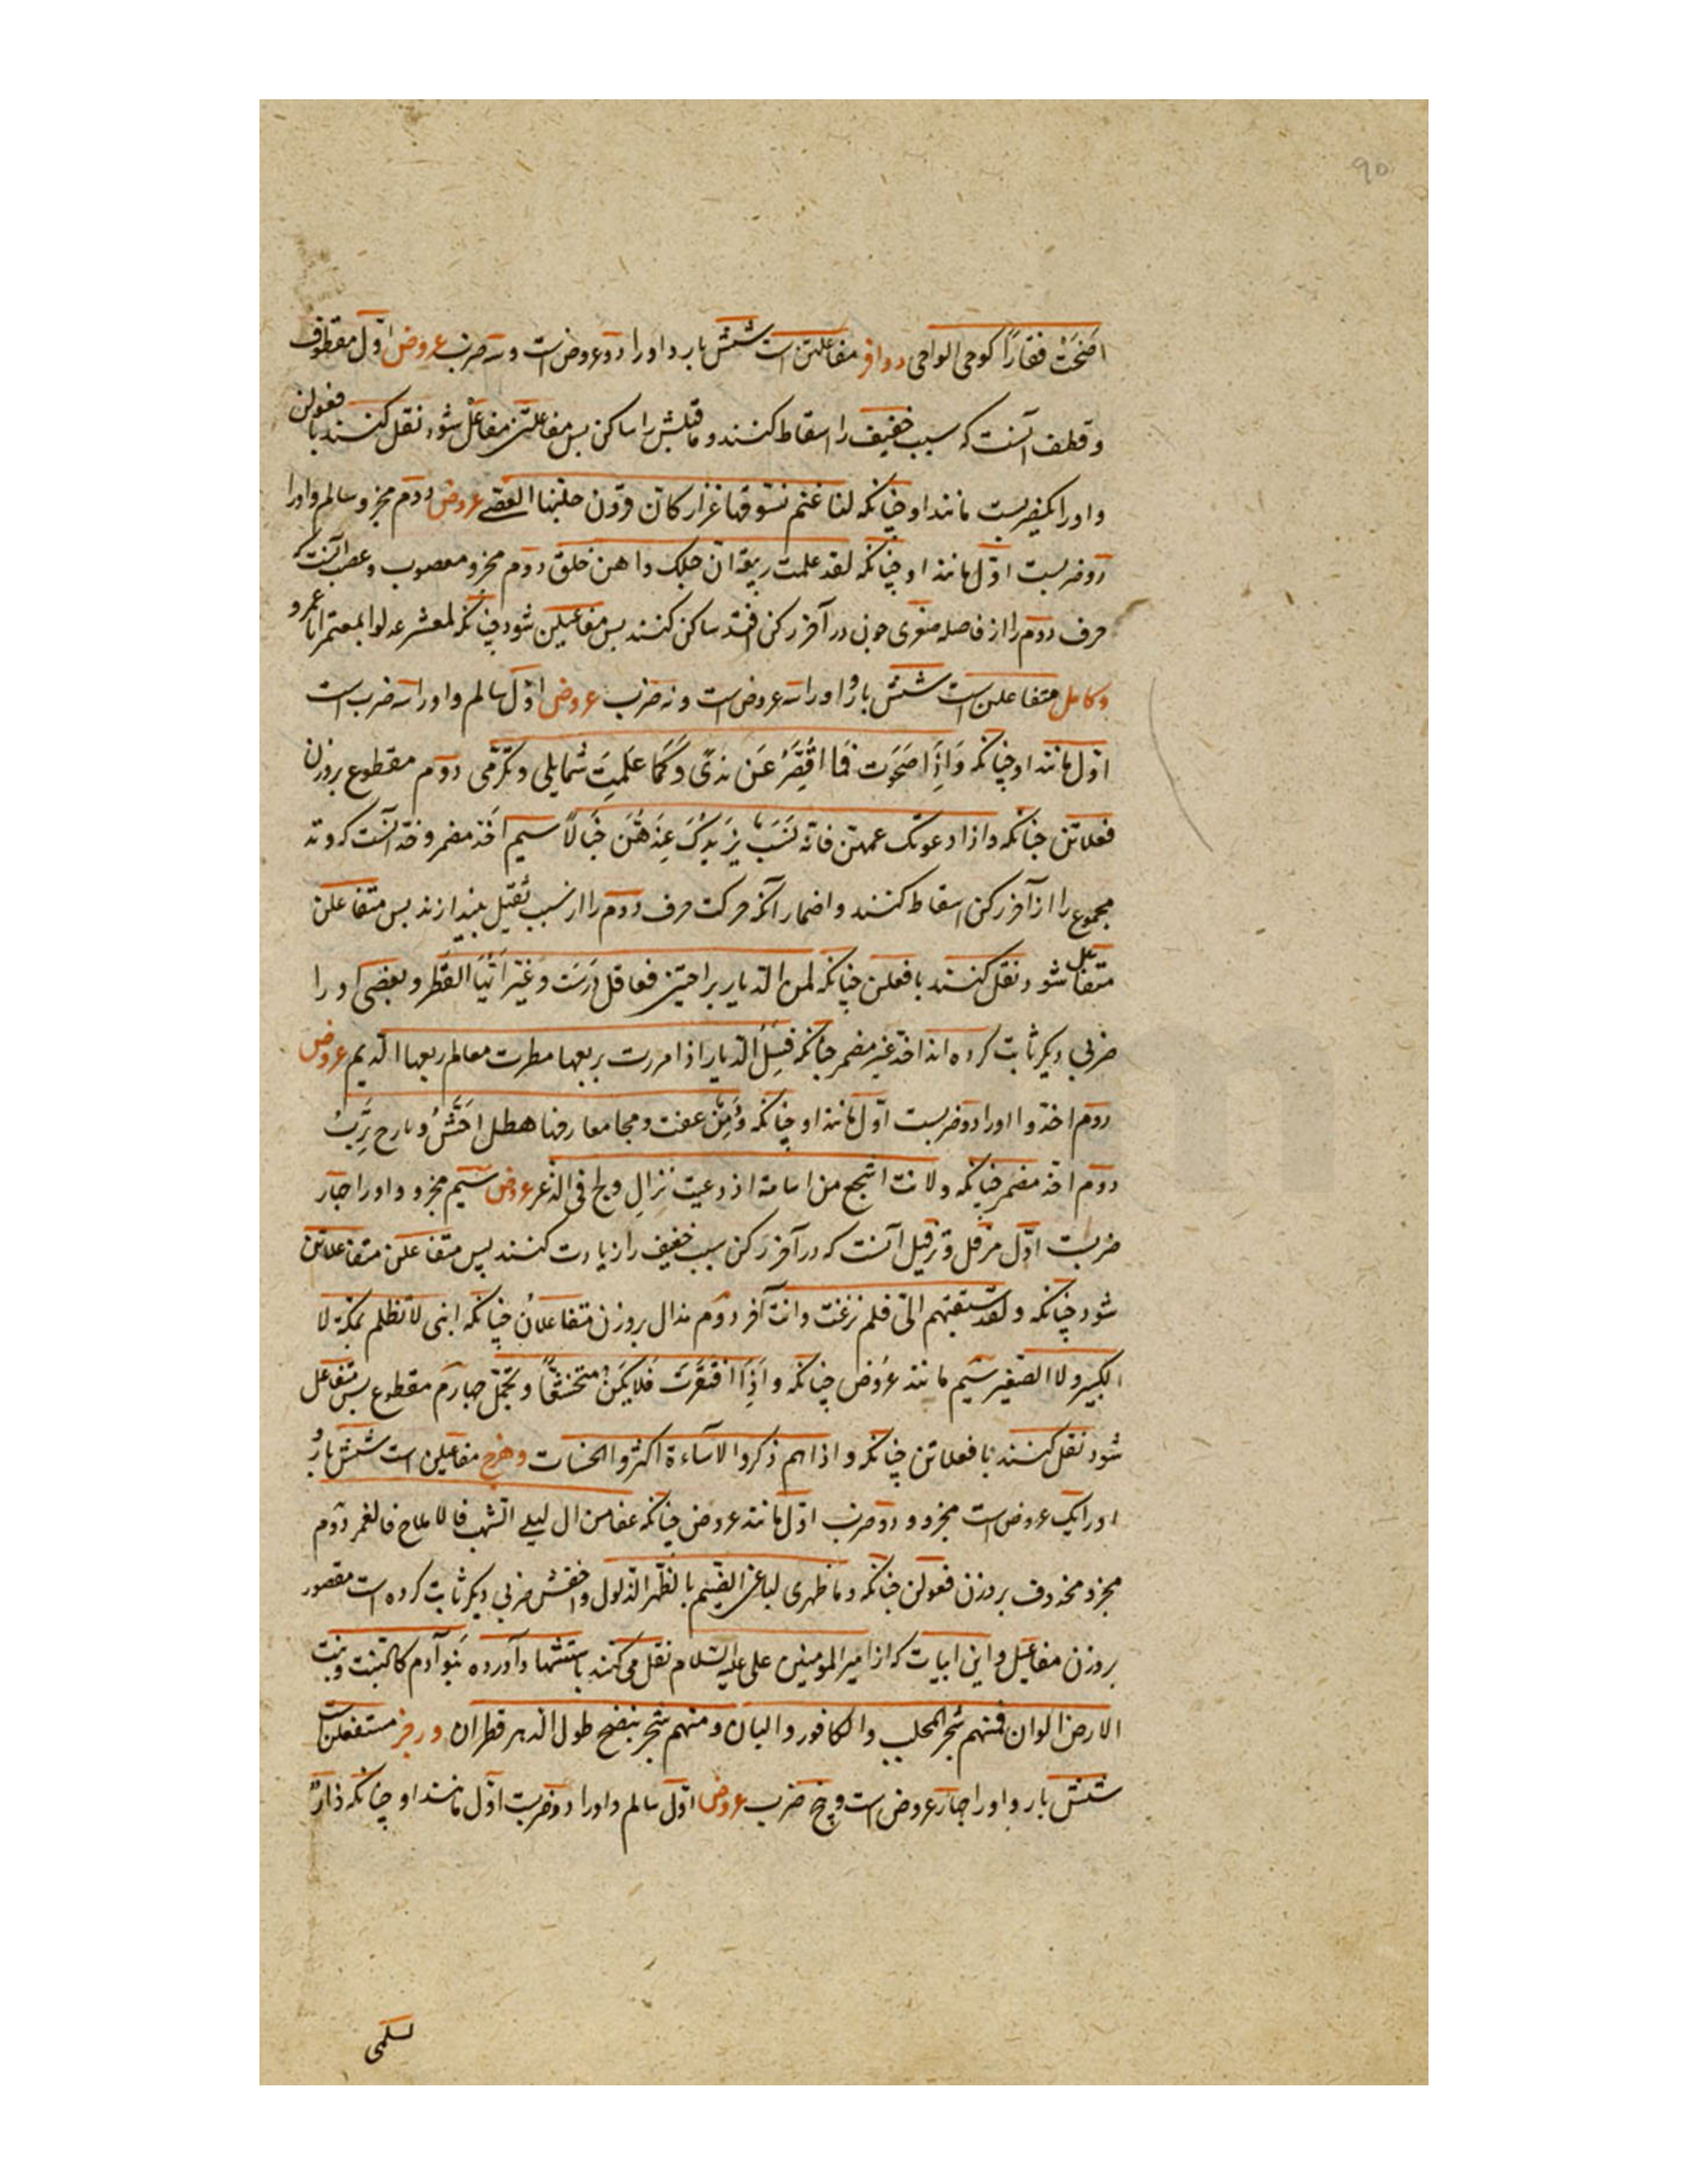 ۹۵
اضحت فقارًا كوحى الواحى و وافر مفاعلتن است شش بار و او را دو عروض است و سه ضرب عروض اوّل مقطوف
و قطف آنست كه سبب خفيف را اسقاط كنند و ماقبلش را ساكن پس مفاعلتن مفاعل شود نقل كنند با فعولن
و او را يكضربست مانند او چنانكه لنا غنم نسوقها غزار كان قرون جلتها العصى عروض دوم مجزو سالم و او را
دو ضربست اوّل مانند او چنانكه لقد علمت ربيعة ان حبلك واهن خلق دوم مجزو معصوب و عصب آنست كه
حرف دوم را از فاصله صغرى چون در آخر ركن افتد ساكن كنند پس مفاعيلن شود چنانكه لمعشر عدلوا بمعتمر ابا عمرو
و كامل متفاعلن است شش بار و او را سه عروض است و نه ضرب عروض اوّل سالم و او را سه ضرب است
اوّل مانند او چنانكه وَ اِذَا صَحَوت فَمَا اقَصِّرُ عَن ندًى وَ كَمَا عَلمِتِ شمايلى و تكرّمى دوم مقطوع بر وزن
فعلاتن چنانكه و اذا دعونك عمهنّ فانّه نَسَبٌ يَزيدكَ عِندَهُنَّ خَبَالًا سيم احذ مضمر و حذ آنست كه وتد
مجموع را از آخر ركن اسقاط كنند و اضمار آنكه حركت حرف دوم را از سبب ثقيل بيندازند پس متفاعلن
متفا شود نقل كنند با فعلن چنانكه لمن الديار برامتين فعاقل دَرَسَت و غيّر اٰيَها القَطر و بعضى او را
ضربى ديگر ثابت كرده اند احذ غير مضمر چنانكه قِبَلَ الديار اذا مررت بربعها مطرت معالم ربعها الديم عروض
دوم احذ و او را دو ضربست اوّل مانند او چنانكه دِمَنٌ عفت و محا معارفها هطل اَجَشُّ و بارح تَرِبُ
دوم احذ مضمر چنانكه و لانت اشجع من اسامة اذ دعيت نزالِ و لج فى الذعر عروض سيم مجزو و او را چهار
ضربست اوّل مرفل و ترفيل آنست كه در آخر ركن سبب خفيف را زيادت كنند پس متفاعلن متفاعلاتن
شود چنانكه و لقد سبقتهم الىّ فلم نزعت و انت آخر دوم مذال بر وزن متفاعلان چنانكه ابنى لا تظلم بمكة لا
الكبير و لا الصّغير سيم مانند عروض چنانكه و اِذَا افتقَرَت فَلا تكُن متخشّعًا و تجمّل چهارم مقطوع پس متفاعل
شود نقل كنند با فعلاتن چنانكه و اذا هم ذكروا الاسآءة اكثروا الحسنات و هزج مفاعيلن است شش بار و
او را يك عروض است مجزو و دو ضرب اوّل مانند عروض چنانكه عفا من ال ليلى السّهب فالاملاح فالغمر دوم
مجزو محذوف بر وزن فعولن چنانكه و ما ظهرى لباغى الضيم بالظّهر الذلول و اخفش ضربى ديگر ثابت كرده است مقصور
بر وزن مفاعيل و اين ابيات كه از امير المومنين على عليه السّلام نقل مى كنند باستشهاد آورده بَنو آدم كالنبت و نبت
الارض الوان فمنهم شجر المحلب و الكافور و البان و منهم شجر ينضح طول الدهر قطران و رجز مستفعلن است
شش بار و او را چهار عروض است و پنج ضرب عروض اوّل سالم و او را دو ضربست اوّل مانند او چنانكه دارٌ
لسلمى